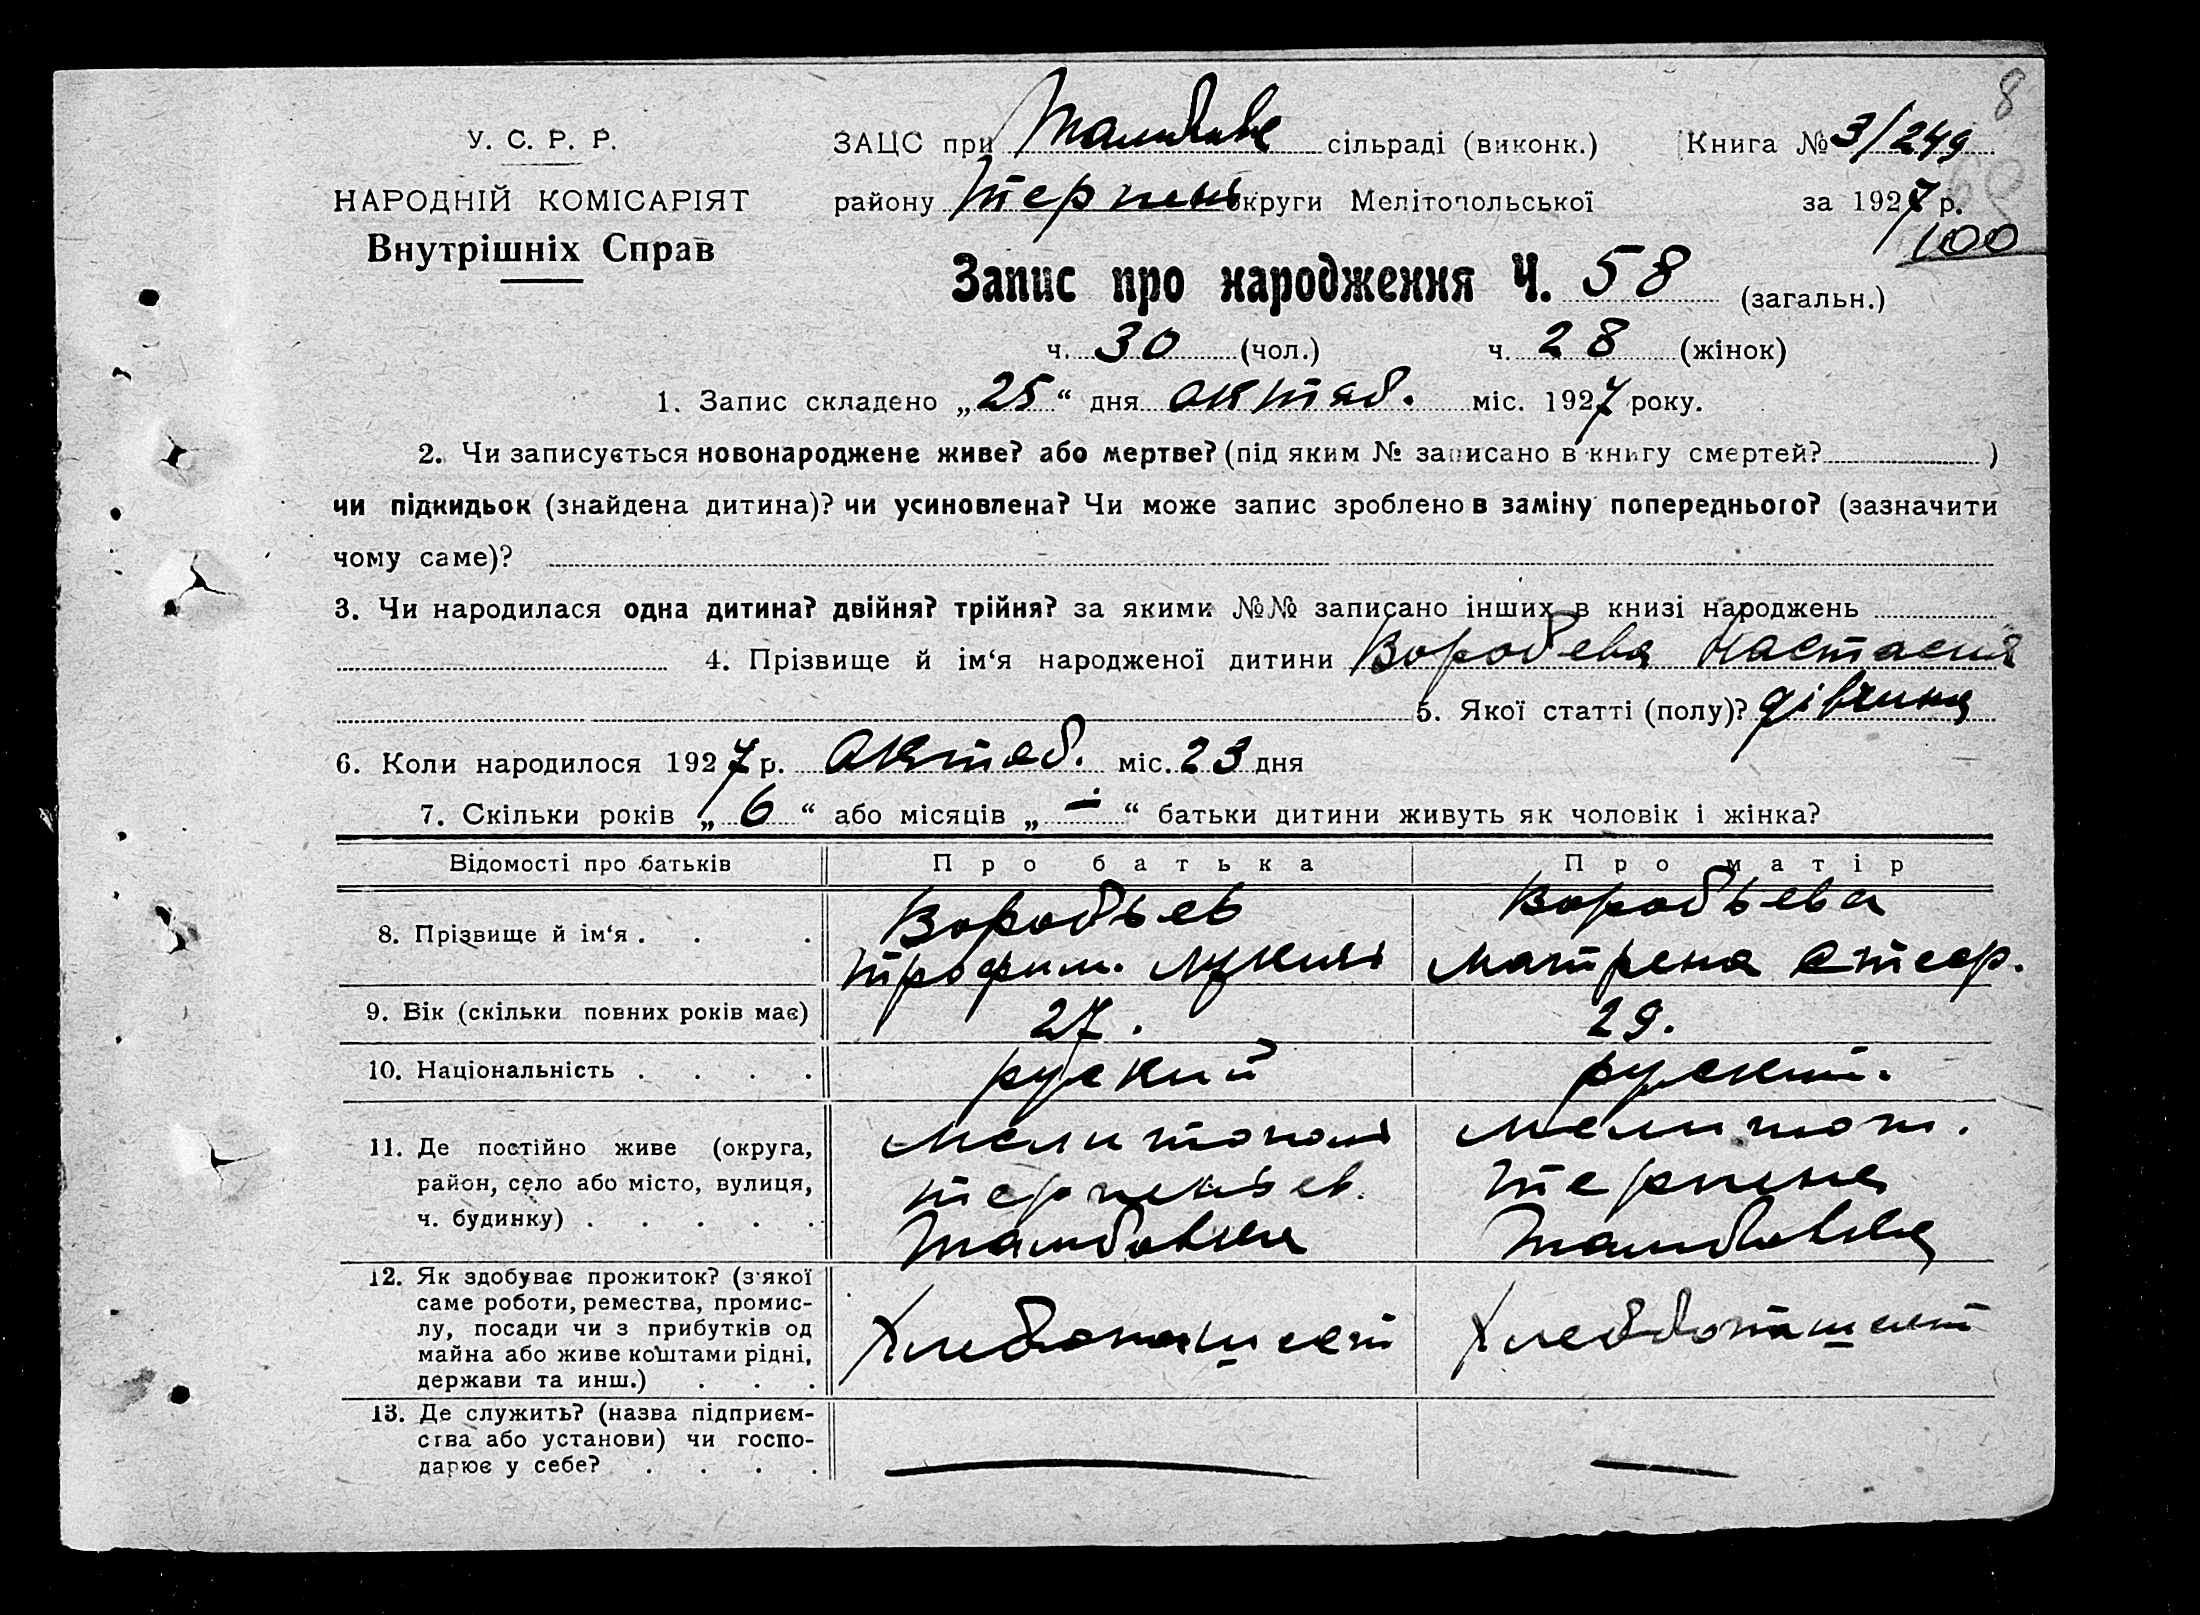 8
У. С. Р. Р.
ЗАЦС при Тамбовке сільраді (виконк.) Книга № 3/249
НАРОДНІЙ КОМІСАРІЯТ
району Терпень округи Мелітопольської за 1927 р.
60
Внутрішніх Справ
100
Запис про народження Ч. 58 (загальн.)
ч. 30 (чол.) ч. 28 (жінок)
1. Запис складено „25“ дня октяб. міс. 1927 року.
2. Чи записується новонароджене живе? або мертве? (під яким № записано в книгу смертей? )
чи підкидьок (знайдена дитина)? чи усиновлена? Чи може запис зроблено в заміну попереднього? (зазначити
чому саме)?
3. Чи народилася одна дитина? двійня? трійня? за якими №№ записано інших в книзі народжень
4. Прізвище й ім‘я народженої дитини Воробева Настасия
5. Якої статті (полу)? дівчина
6. Коли народилося 1927 р. октяб. міс. 23 дня
7. Скільки років „6“ або місяців „-“ батьки дитини живуть як чоловік і жінка?
Відомості про батьків Про батька Про матір
8. Прізвище й ім‘я . . . Воробьев Воробьева
Трофим. Матрена
9. Вік (скільки повних років має) 27. 29.
10. Національність . . . . руский руский.
11. Де постійно живе (округа, Мелитополь Мелитоп.
район, село або місто, вулиця, Терпеньев. Терпене
ч. будинку) . . . . . Тамбовка Тамбовка
12. Як здобуває прожиток? (з'якої
саме роботи, ремества, промис-
лу, посади чи з прибутків од Хлебопашест Хлебопашест
майна або живе коштами рідні,
держави та инш.) . . .
13. Де служить? (назва підприєм-
ства або установи) чи госпо-
дарює у себе? . . . .